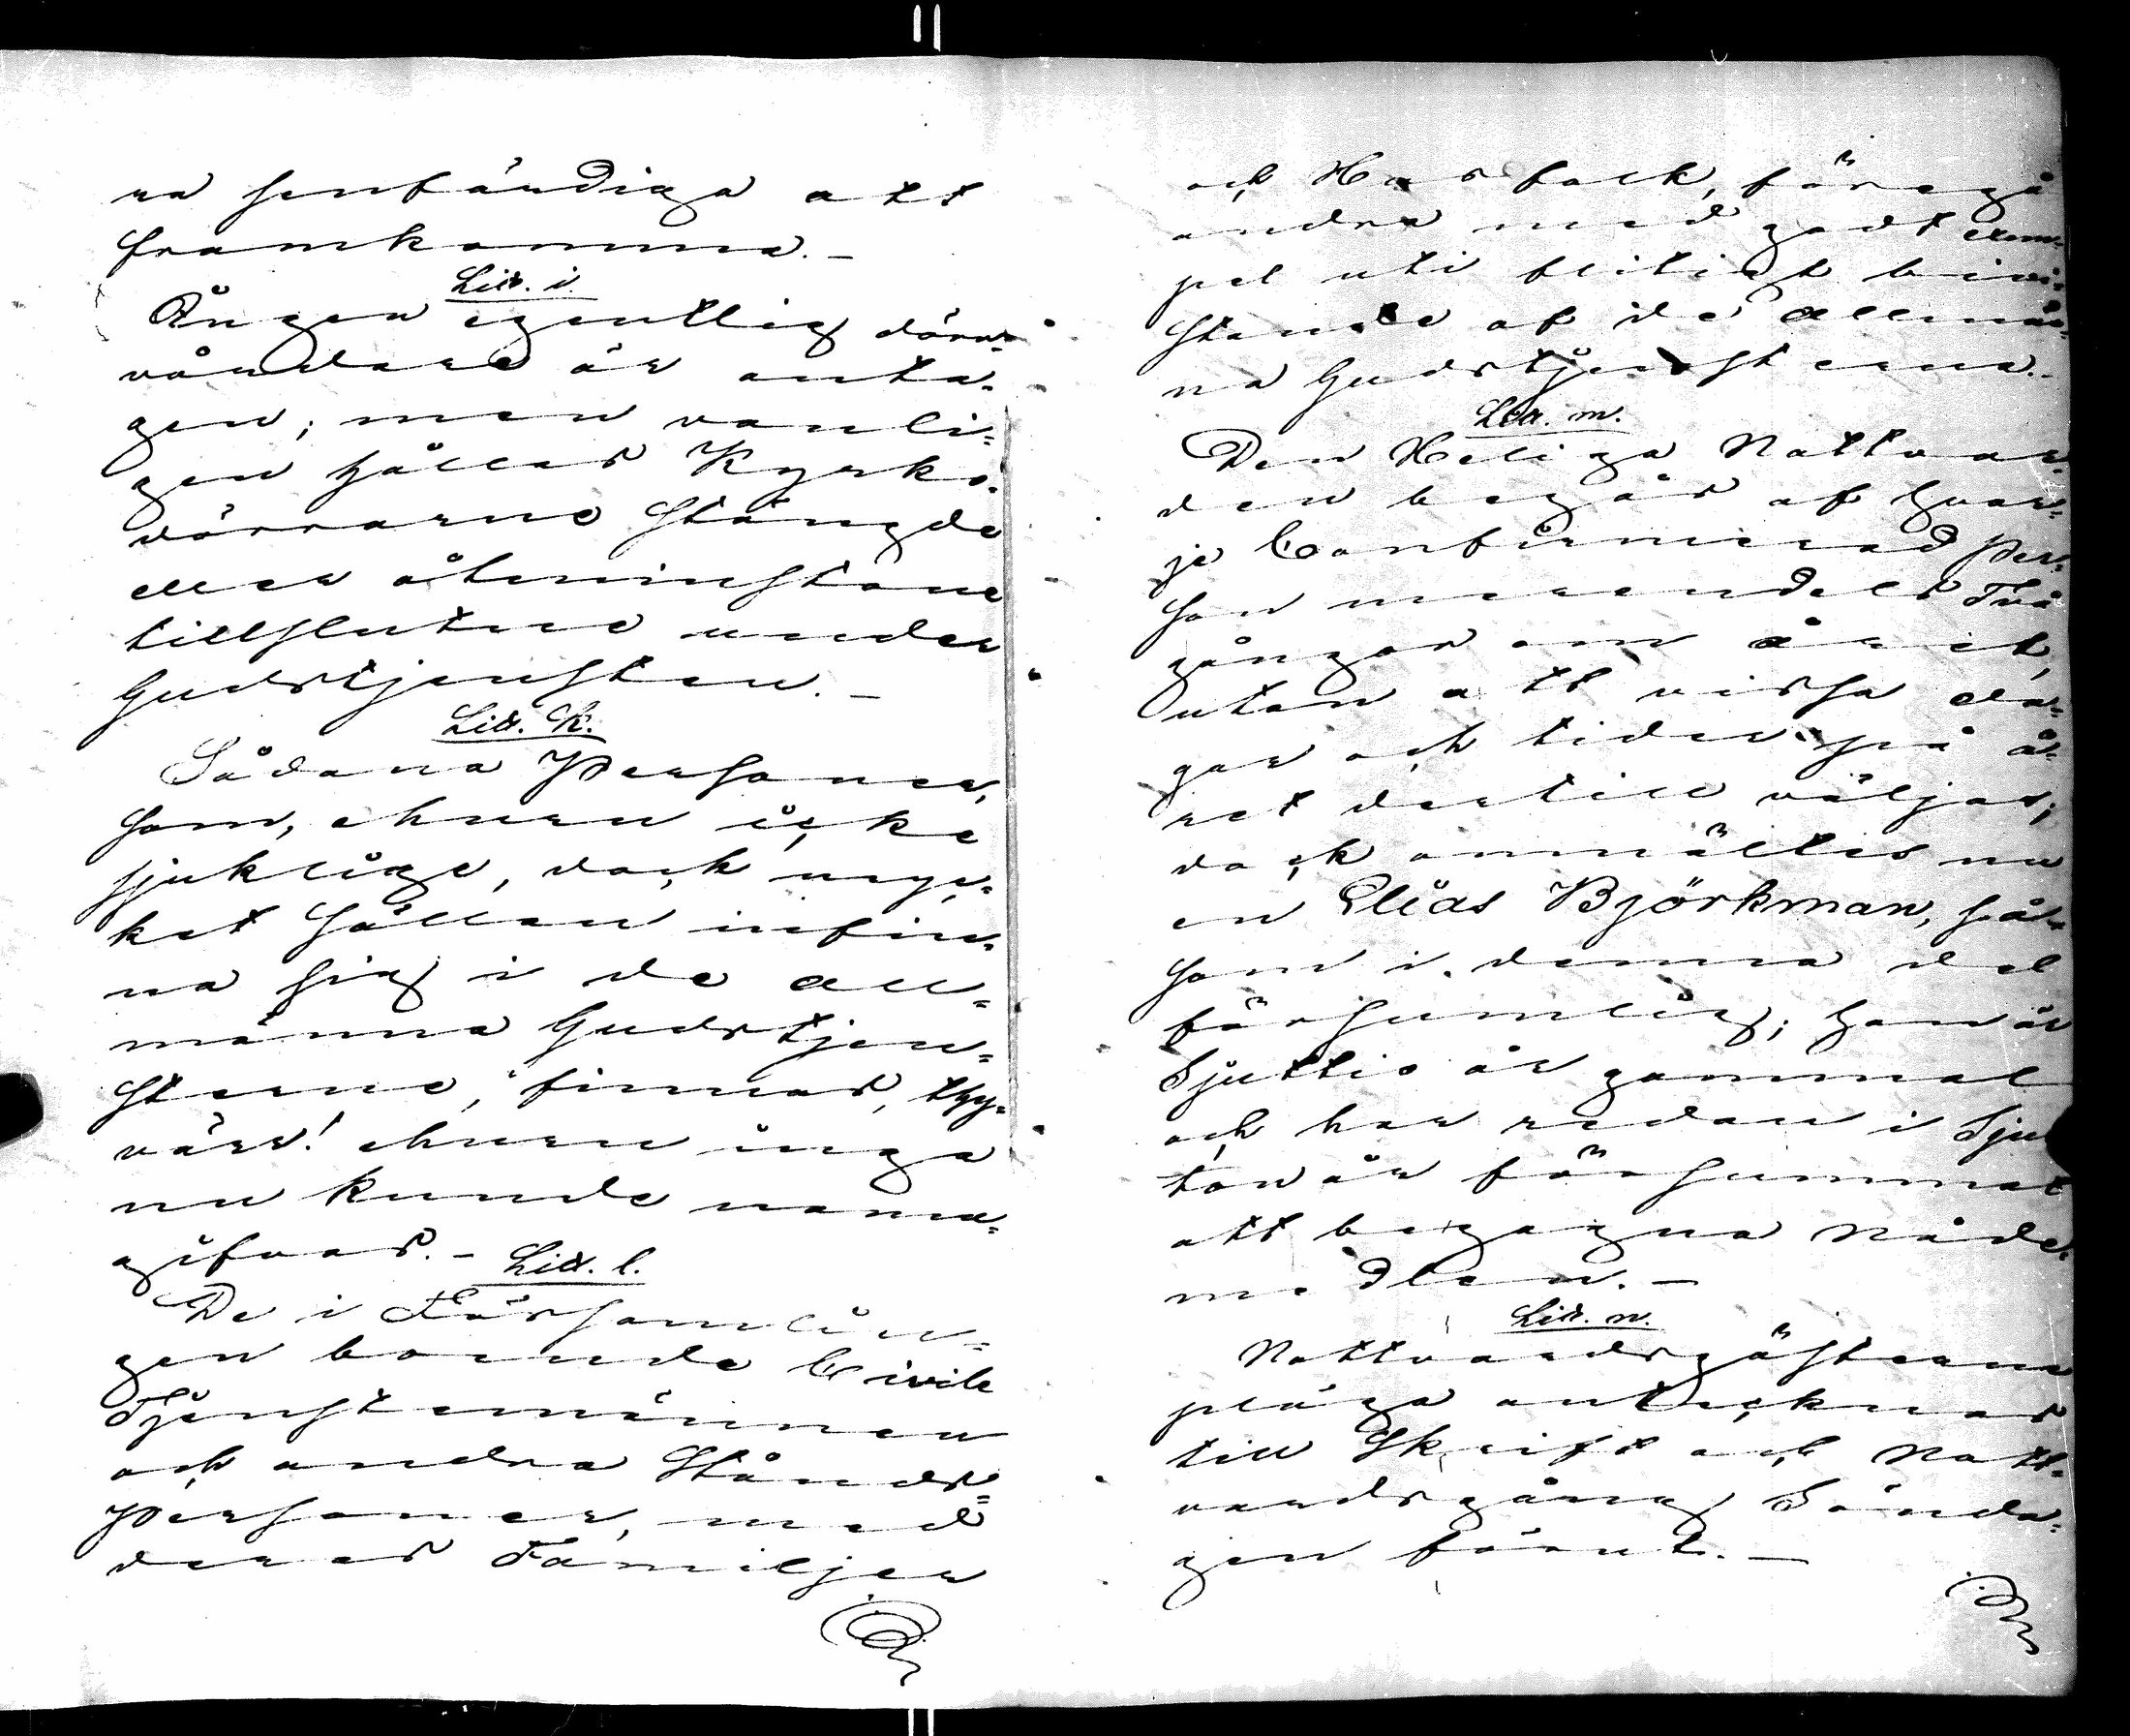 na senfärdiga att
framkomma.–
Litt. i.
Ingen egentlig dörr-
våndare är anta-
gen; men vanli-
gen hållas Kyrko-
dörrarne stängde
eller åtminstone
tillslutne under
Gudstjensten.–
Litt. k.
Sådana Personer,
som, ehuru icke
sjuklige, dock myc-
ket sällan infin-
na sig i de all-
männa Gudstjen-
sterne, finnas, thy-
värr! ehuru inga
nu kunde namn-
gifvas.–
Litt. l.
De i Församlin-
gen boende Civile
Tjenstemännen
och andra Stånds-
personer, med
deras Familjer
och Husfolk, föregå
andra med godt exem-
pel uti flitigt bevi-
stande af de allmän-
na Gudstjensterna.–
Litt. m.
Den Heliga Nattvar-
den begås af hvar-
je Confirmerad Per-
son merendels Två
gånger om året,
utan att vissa da-
gar och tider på å-
ret dertill väljas;
dock anmältes nu
en Elias Björkman, så-
som i denna del
försumlig; han är
Sjuttio år gammal
och har redan i Sju-
ton år försummat
att begagna Nåde-
medlen.–
Litt. n.
Nattvardsgästerne
pläga antecknas
till Skrift och Natt-
vardsgång Sönda-
gen förut.–